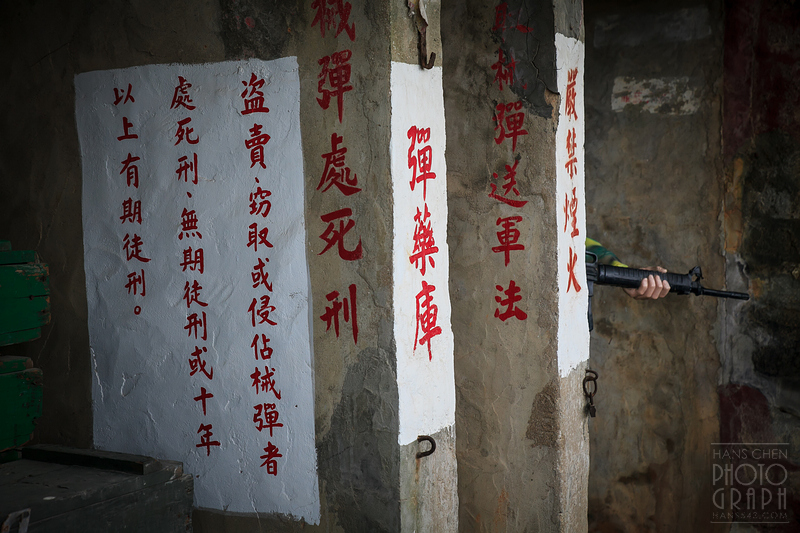 盜賣、窃取或侵佔械彈者
處死刑、無期徒刑或十年
以上有期徒刑。
械彈處死刑
彈藥庫
械彈送軍法
嚴禁煙火
HANS CHEN
PHOTO
GRAPH